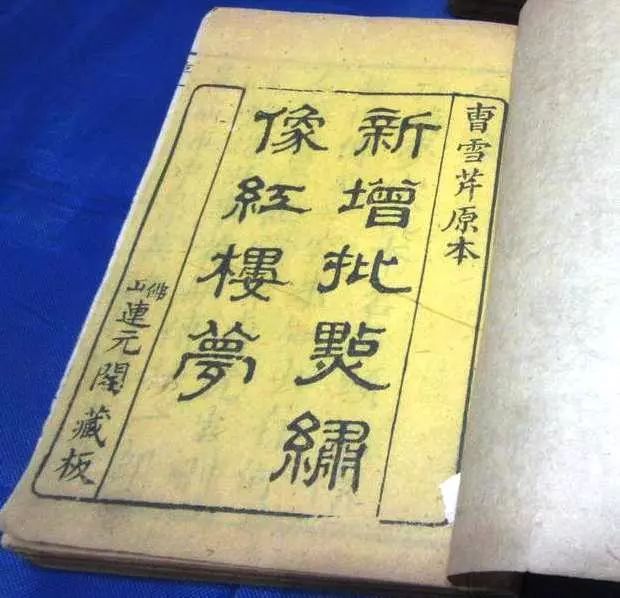 曹雪芹原本
新增批點繡
像紅樓夢
佛山連元閣藏板